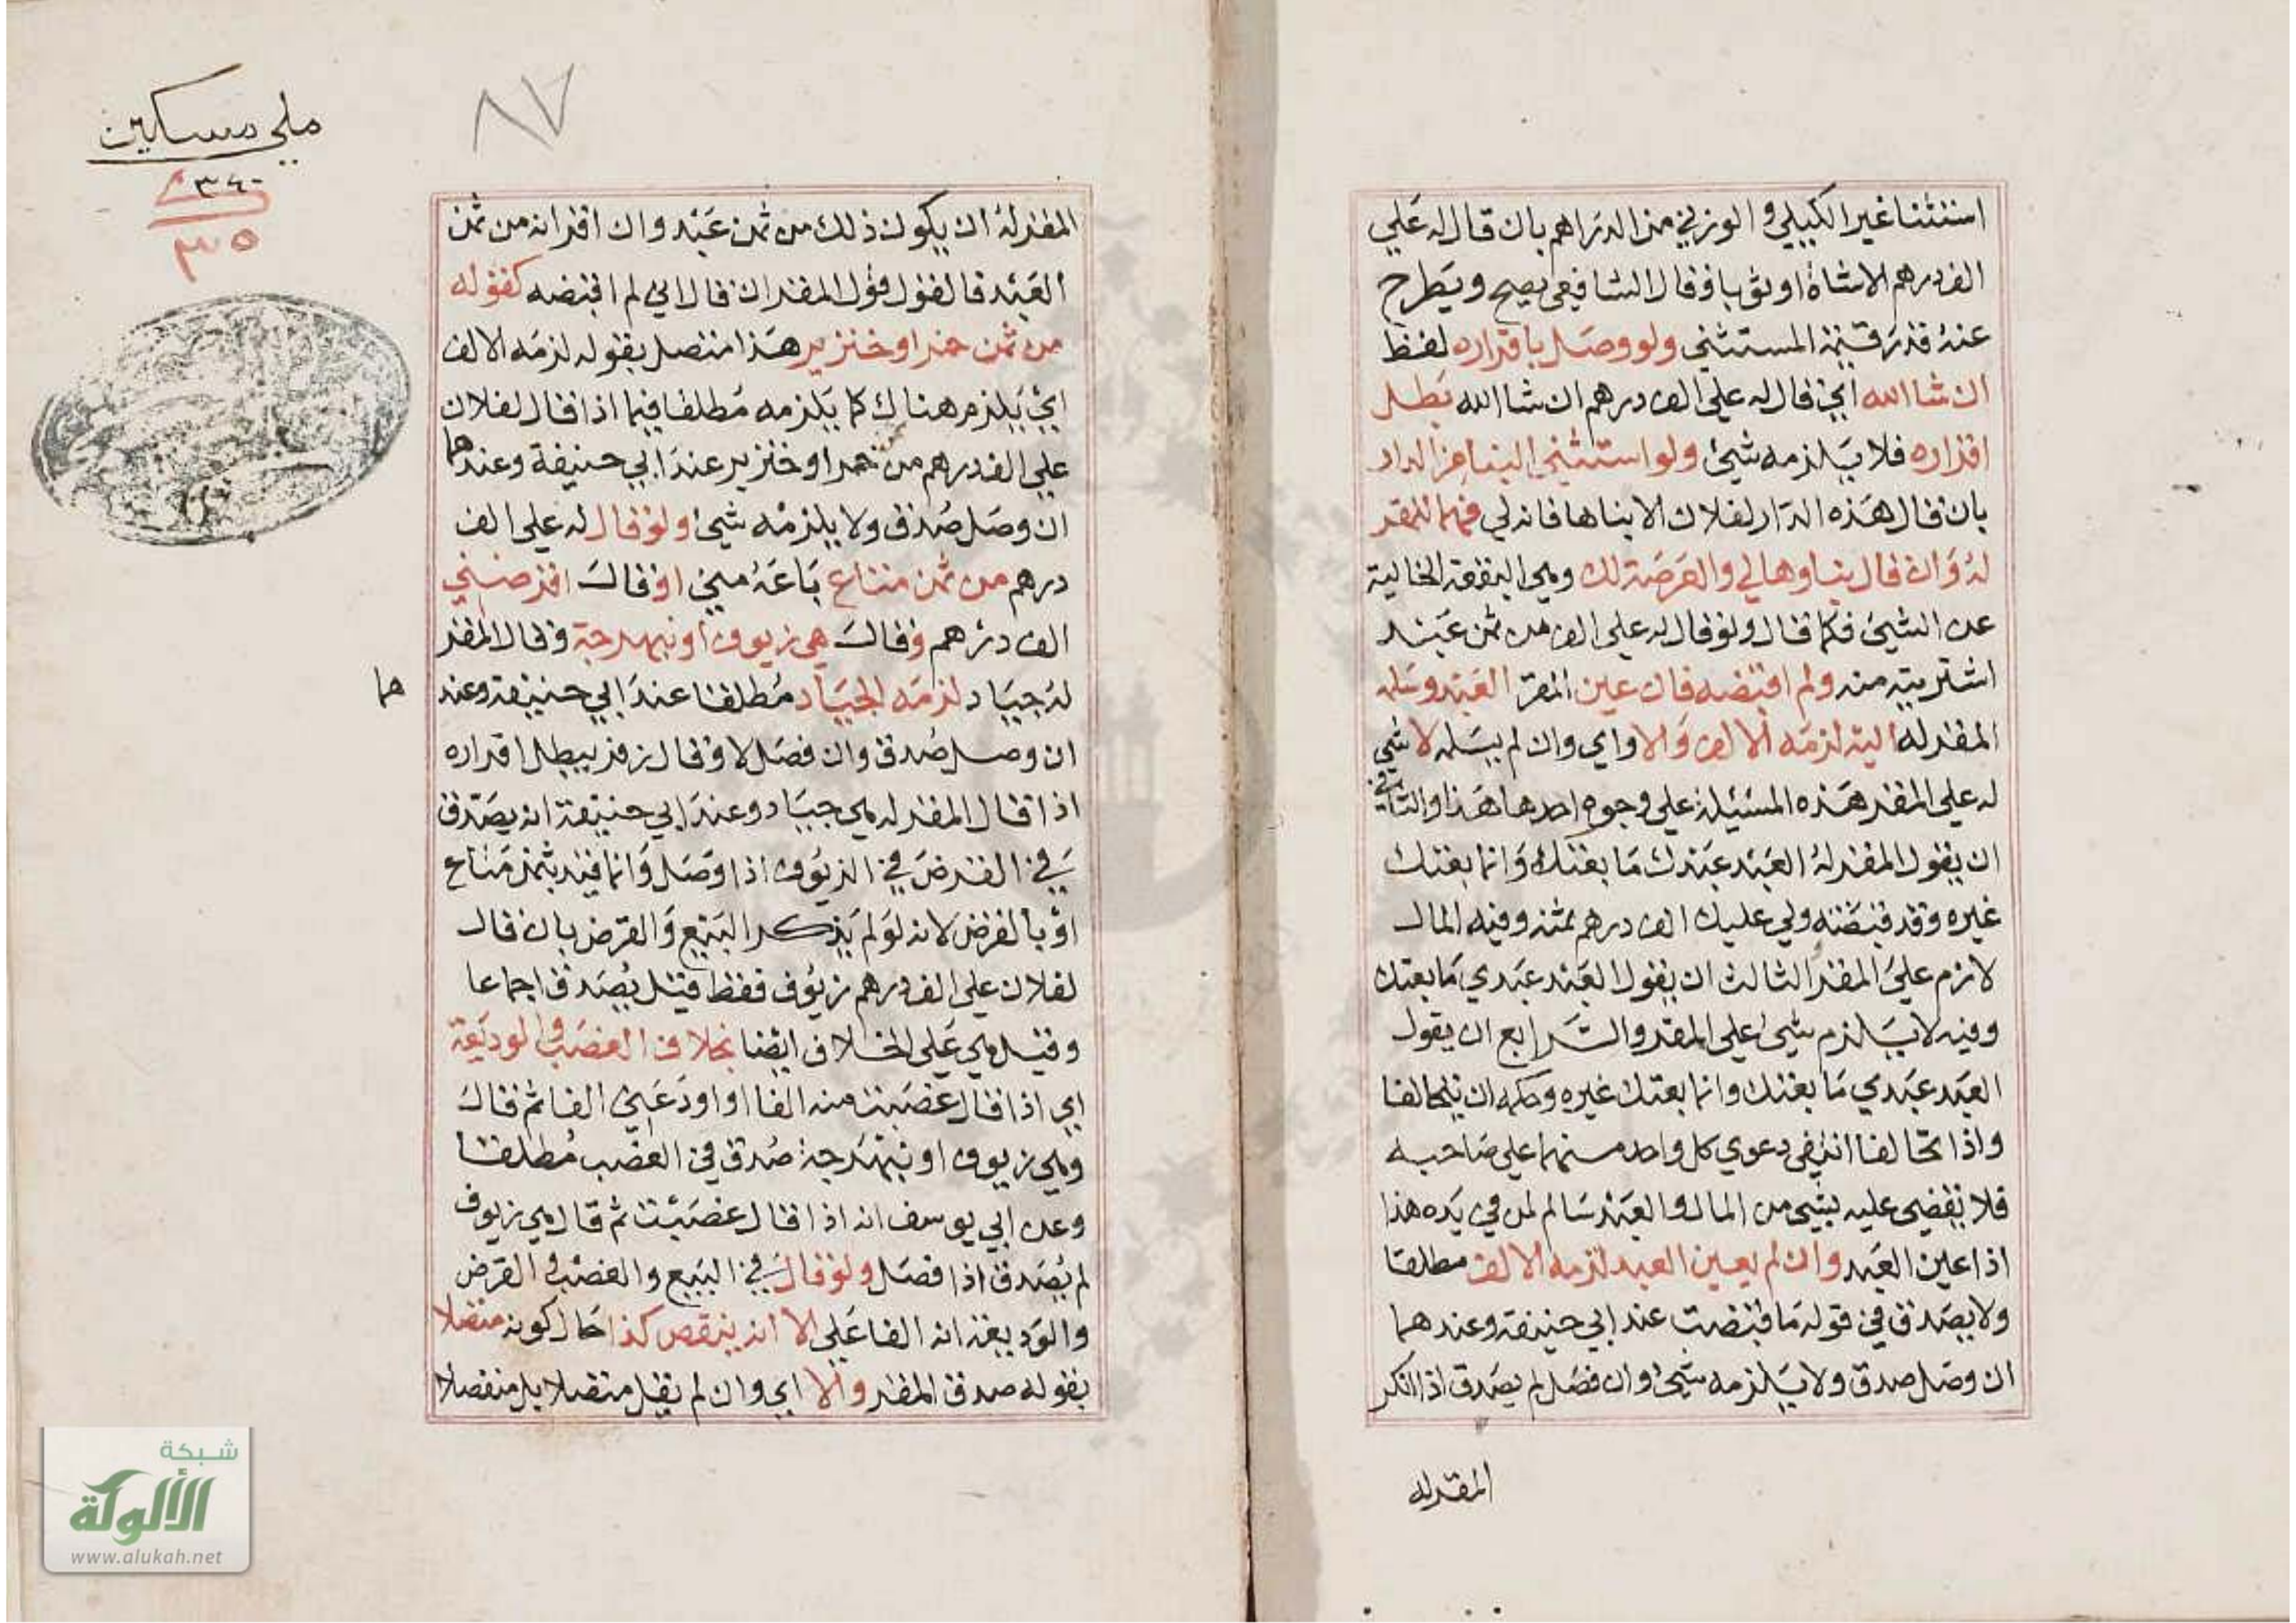 استثنا غير الكيلي والوزني من الدراهم بان قال له علي
الف درهم الا شاة او ثوبا وقال الشافعي يصح ويطرح
عنه قدر قيمة المستثني ولو وصل باقراره لفظ
ان شا الله اي قال له علي الف درهم ان شا الله بطل
اقراره فلا يلزمه شيئ ولو استثني البنا من الدار
بان قال هذه الدار لفلان الا بناها فانه لي فهما للمقر
له وان قال بناوها لي والعرصة لك وهي البقعة الخالية
عن الشيئ فكما قال ولو قال له علي الف من ثمن عبد
اشتريته منه ولم اقبضه فان عين المقر العبد وسلمه
المقر له اليه لزمه الالف والا واي وان لم يسلمه لا شي
له علي المقر هذه المسئيلة علي وجوه احدها هذا والثاني
ان يقول المقر له العبد عبدك ما بعتك وانما بعتك
غيره وقد قبضته ولي عليك الف درهم ثمنه وفيه المال
لازم علي المقر الثالث ان يقول العبد عبدي ما بعتك
وفيه لا يلزم شيئ علي المقر والرابع ان يقول
العبد عبدي ما بعتك وانما بعتك غيره وحكمه ان يتحالفا
واذا تحالفا انتفي دعوي كل واحد منهما علي صاحبه
فلا يقضي عليه بشيئ من المال والعبد سالم لمن في يده هذا
اذا عين العبد وان لم يعين العبد لزمه الالف مطلقا
ولا يصدق في قوله ما قبضت عند ابي حنيفة وعندهما
ان وصل صدق ولا يلزمه شيئ وان فصل لم يصدق اذا انكر
المقر له
ملي مسكين
٣٤٠
٣٥
٨٧
المقر له ان يكون ذلك من ثمن عبد وان اقر انه من ثمن
العبد فالقول قول المقر ان قال اني لم اقبضه كقوله
من ثمن خمر او خنزير هذا متصل بقوله لزمه الالف
اي يلزم هناك كما يلزمه مطلقا فيما اذا قال لفلان
علي الف درهم من خمر او خنزير عند ابي حنيفة وعندهما
ان وصل صدق ولا يلزمه شيئ ولو قال له علي الف
درهم من ثمن متاع باعه مني او قال اقرضني
الف درهم وقال هي زيوف او نبهرجة وقال المقر
له جياد لزمه الجياد مطلقا عند ابي حنيفة وعند
هما
ان وصل صدق وان فصل لا وقال زفر يبطل اقراره
اذا قال المقر له هي جياد وعند ابي حنيفة انه يصدق
في القرض في الزيوف اذا وصل وانما قيد بثمن متاع
او بالقرض لانه لو لم يذكر البيع والقرض بان قال
لفلان علي الف درهم زيوف فقط قيل يصدق اجماعا
وقيل هي علي الخلاف ايضا بخلاف الغصب والوديعة
اي اذا قال غصبت منه الفا او اودعني الفا ثم قال
وهي زيوف او نبهرجة صدق في الغصب مطلقا
وعن ابي يوسف انه اذا قال غصبت ثم قال هي زيوف
لم يصدق اذا فصل ولو قال في البيع والغصب والقرض
والوديعة انه الفا علي الا انه ينقص كذا حال كونه متصلا
بقوله صدق المقر والا اي وان لم يقل متصلا بل منفصلا
شبكة
الألوكة
www.alukah.net